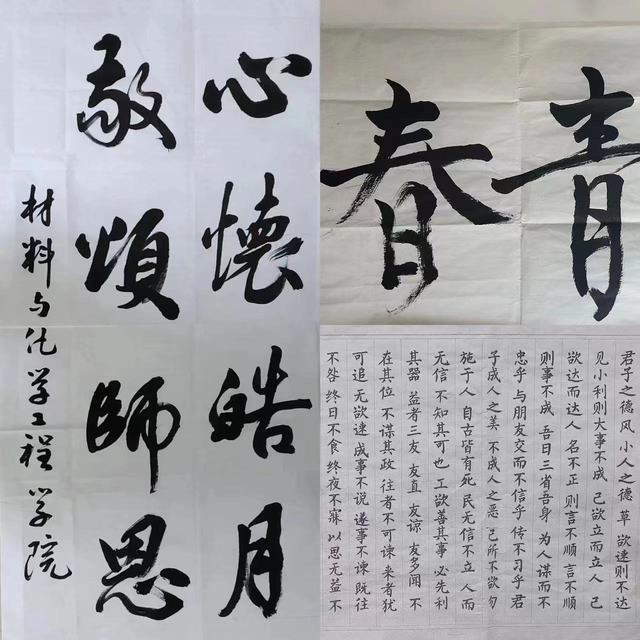 心懷皓月
敬頌師恩
材料与化学工程学院
青春
君子之德风 小人之德 草 欲速则不达
见小利则大事不成 己欲立而立人 己
欲达而达人 名不正 则言不顺 言不顺
则事不成 吾日三省吾身 为人谋而不
忠乎 与朋友交而不信乎 传不习乎 君
子成人之美 不成人之恶 己所不欲 勿
施于人 自古皆有死 民无信不立 人而
无信 不知其可也 工欲善其事 必先利
其器 益者三友 友直 友谅 友多闻 不
在其位 不谋其政 往者不可谏 来者犹
可追 无欲速 成事不说 遂事不谏 既往
不咎 终日不食 终夜不寐 以思无益 不